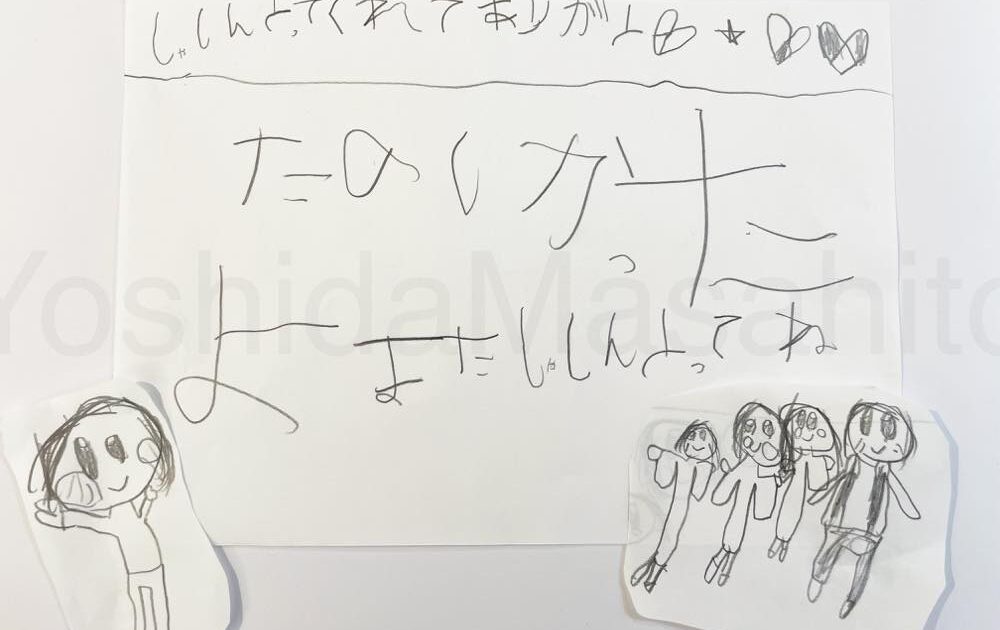 しゃしんとってくれてありがとう
たのしかった
よーまたしゃしんとってね
YoshidaMasahito